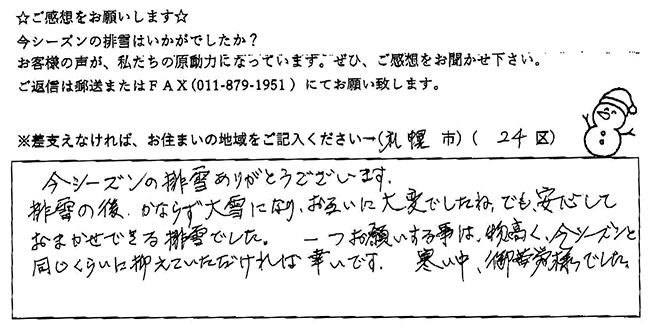 ☆ご感想をお願いします☆
今シーズンの排雪はいかがでしたか？
お客様の声が、私たちの原動力になっています。ぜひ、ご感想をお聞かせ下さい。
ご返信は郵送またはＦＡＸ(011-879-1951）にてお願い致します。
※差支えなければ、お住まいの地域をご記入ください→(札幌 市）（ 24 区）
今シーズンの排雪ありがとうございます.
排雪の後. かならず大雪になり、お互いに大変でしたね。でも、安心して
おまかせできる排雪でした。 一つお願いする事は、物高く、今シーズンと
同じくらいに抑えていただければ幸いです. 寒い中、御苦労様でした。